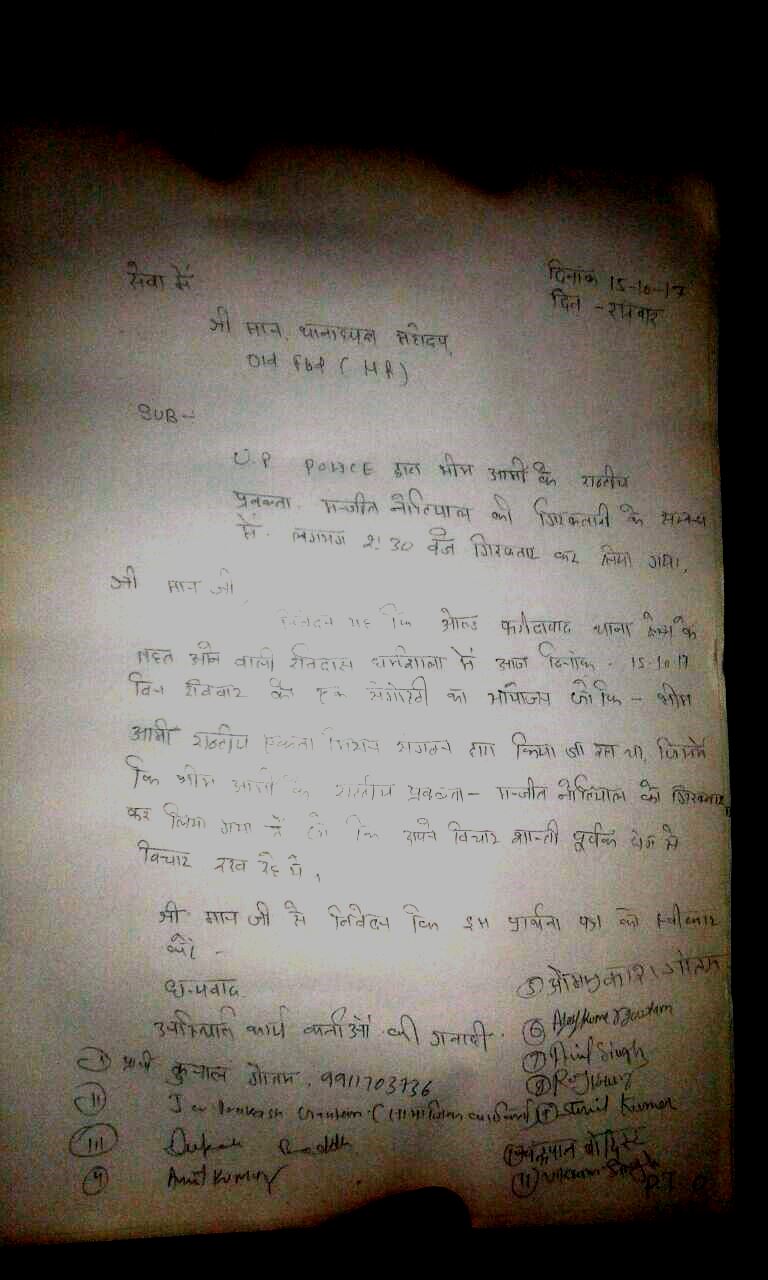 दिनांक 15-10-17
दिन - रविवार
सेवा में
श्री मान. थानाध्यक्ष महोदय,
SUB-
U.P POLICE द्वारा भीम आर्मी के राष्ट्रीय
प्रवक्ता. मन्जीत नौटियाल की गिरफ्तारी के सम्बन्ध
में. लगभग 2:30 बजे गिरफ्तार कर लिया गया,
श्री मान जी,
निवेदन यह कि ओल्ड फरीदाबाद थाना क्षेत्र के
तहत आने वाली रविदास धर्मशाला में आज दिनांक. 15.10.17
दिन रविवार को एक का आयोजन जो कि - भीम
आर्मी राष्ट्रीय एकता मिशन संगठन द्वारा किया जा रहा था, जिसमें
कि भीम आर्मी के राष्ट्रीय प्रवक्ता - मन्जीत नौटियाल को गिरफ्तार
कर लिया गया है जो कि अपने विचार शान्ती पूर्वक ढंग से
विचार रख रहे थे,
श्री मान जी से निवेदन कि इस प्रार्थना पत्र को स्वीकार
करें -
धन्यवाद
उपस्थिति कार्य कर्ताओं की
प्रार्थी कुनाल गौतम, 9911703736
(II) Prakash Gautam
(III) Deepak Boddh
(4) Amit Kumar
(5) ओमप्रकाश गौतम
(6) Ajay Kumar Gautam
(7) Singh
(8)
(9) Sunil Kumar
(11) Vikram Singh
P.T.O